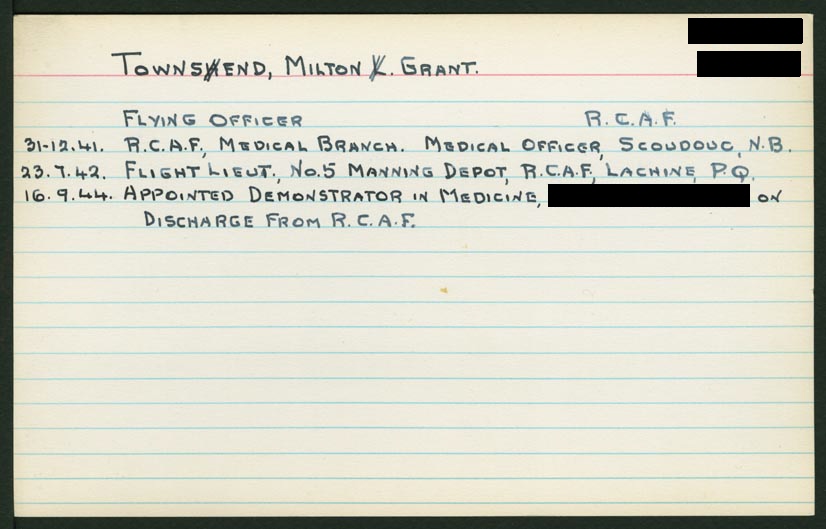 TOWNSEND, MILTON GRANT.
FLYING OFFICER R.C.A.F.
31-12.41. R.C.A.F, MEDICAL BRANCH. MEDICAL OFFICER, SCOUDOUC, N.B.
23.7.42. FLIGHT LIEUT., NO.5 MANNING DEPOT, R.C.A.F, LACHINE, P.Q.
16.9.44. APPOINTED DEMONSTRATOR IN MEDICINE, ON
DISCHARGE FROM R.C.A.F.